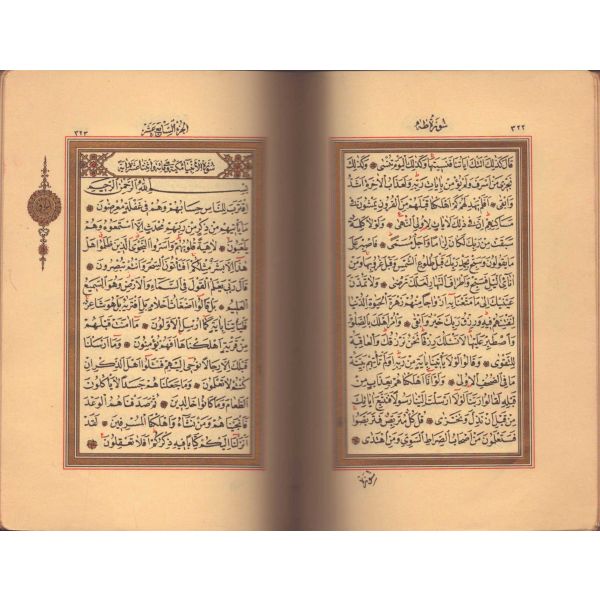 ٣٢٢ سُورَةُ طٰهٰ
قَالَ كَذٰلِكَ اَتَتْكَ اٰيَاتُنَا فَنَسِيتَهَا وَكَذٰلِكَ الْيَوْمَ تُنْسٰى ۞ وَكَذٰلِكَ
نَجْزِي مَنْ اَسْرَفَ وَلَمْ يُؤْمِنْ بِاٰيَاتِ رَبِّهِ وَلَعَذَابُ الْاٰخِرَةِ اَشَدُّ
وَاَبْقٰى ۞ اَفَلَمْ يَهْدِ لَهُمْ كَمْ اَهْلَكْنَا قَبْلَهُمْ مِنَ الْقُرُونِ يَمْشُونَ فِي
مَسَاكِنِهِمْ اِنَّ فِي ذٰلِكَ لَاٰيَاتٍ لِاُولِي النُّهٰى ۞ وَلَوْلَا كَلِمَةٌ
سَبَقَتْ مِنْ رَبِّكَ لَكَانَ لِزَامًا وَاَجَلٌ مُسَمًّى ۞ فَاصْبِرْ عَلٰى
مَا يَقُولُونَ وَسَبِّحْ بِحَمْدِ رَبِّكَ قَبْلَ طُلُوعِ الشَّمْسِ وَقَبْلَ غُرُوبِهَا وَمِنْ
اٰنَاۤئِ الَّيْلِ فَسَبِّحْ وَاَطْرَافَ النَّهَارِ لَعَلَّكَ تَرْضٰى ۞ وَلَا تَمُدَّنَّ
عَيْنَيْكَ اِلٰى مَا مَتَّعْنَا بِهِ اَزْوَاجًا مِنْهُمْ زَهْرَةَ الْحَيٰوةِ الدُّنْيَا
لِنَفْتِنَهُمْ فِيهِ وَرِزْقُ رَبِّكَ خَيْرٌ وَاَبْقٰى ۞ وَأْمُرْ اَهْلَكَ بِالصَّلٰوةِ
وَاصْطَبِرْ عَلَيْهَا لَا نَسْـَٔلُكَ رِزْقًا نَحْنُ نَرْزُقُكَ وَالْعَاقِبَةُ
لِلتَّقْوٰى ۞ وَقَالُوا لَوْلَا يَأْتِينَا بِاٰيَةٍ مِنْ رَبِّهِ اَوَلَمْ تَأْتِهِمْ بَيِّنَةُ
مَا فِي الصُّحُفِ الْاُولٰى ۞ وَلَوْ اَنَّا اَهْلَكْنَاهُمْ بِعَذَابٍ مِنْ
قَبْلِهِ لَقَالُوا رَبَّنَا لَوْلَا اَرْسَلْتَ اِلَيْنَا رَسُولًا فَنَتَّبِعَ اٰيَاتِكَ
مِنْ قَبْلِ اَنْ نَذِلَّ وَنَخْزٰى ۞ قُلْ كُلٌّ مُتَرَبِّصٌ فَتَرَبَّصُوا
فَسَتَعْلَمُونَ مَنْ اَصْحَابُ الصِّرَاطِ السَّوِيِّ وَمَنِ اهْتَدٰى ۞
سورة
الجزء السابع عشر ٣٢٣
سورة الانبياء مكية وهي مائة واثنتا عشرة اية
بِسْمِ اللّٰهِ الرَّحْمٰنِ الرَّحِيمِ
اِقْتَرَبَ لِلنَّاسِ حِسَابُهُمْ وَهُمْ فِي غَفْلَةٍ مُعْرِضُونَ ۞
مَا يَأْتِيهِمْ مِنْ ذِكْرٍ مِنْ رَبِّهِمْ مُحْدَثٍ اِلَّا اسْتَمَعُوهُ وَهُمْ
يَلْعَبُونَ ۞ لَاهِيَةً قُلُوبُهُمْ وَاَسَرُّوا النَّجْوَى الَّذِينَ ظَلَمُوا هَلْ
هٰذَا اِلَّا بَشَرٌ مِثْلُكُمْ اَفَتَأْتُونَ السِّحْرَ وَاَنْتُمْ تُبْصِرُونَ ۞
قَالَ رَبِّي يَعْلَمُ الْقَوْلَ فِي السَّمَاۤءِ وَالْاَرْضِ وَهُوَ السَّمِيعُ
الْعَلِيمُ ۞ بَلْ قَالُوا اَضْغَاثُ اَحْلَامٍ بَلِ افْتَرٰيهُ بَلْ هُوَ شَاعِرٌ
فَلْيَأْتِنَا بِاٰيَةٍ كَمَا اُرْسِلَ الْاَوَّلُونَ ۞ مَا اٰمَنَتْ قَبْلَهُمْ
مِنْ قَرْيَةٍ اَهْلَكْنَاهَا اَفَهُمْ يُؤْمِنُونَ ۞ وَمَا اَرْسَلْنَا
قَبْلَكَ اِلَّا رِجَالًا نُوحِي اِلَيْهِمْ فَسْـَٔلُوا اَهْلَ الذِّكْرِ اِنْ
كُنْتُمْ لَا تَعْلَمُونَ ۞ وَمَا جَعَلْنَاهُمْ جَسَدًا لَا يَأْكُلُونَ
الطَّعَامَ وَمَا كَانُوا خَالِدِينَ ۞ ثُمَّ صَدَقْنَاهُمُ الْوَعْدَ
فَاَنْجَيْنَاهُمْ وَمَنْ نَشَاۤءُ وَاَهْلَكْنَا الْمُسْرِفِينَ ۞ لَقَدْ
اَنْزَلْنَا اِلَيْكُمْ كِتَابًا فِيهِ ذِكْرُكُمْ اَفَلَا تَعْقِلُونَ ۞